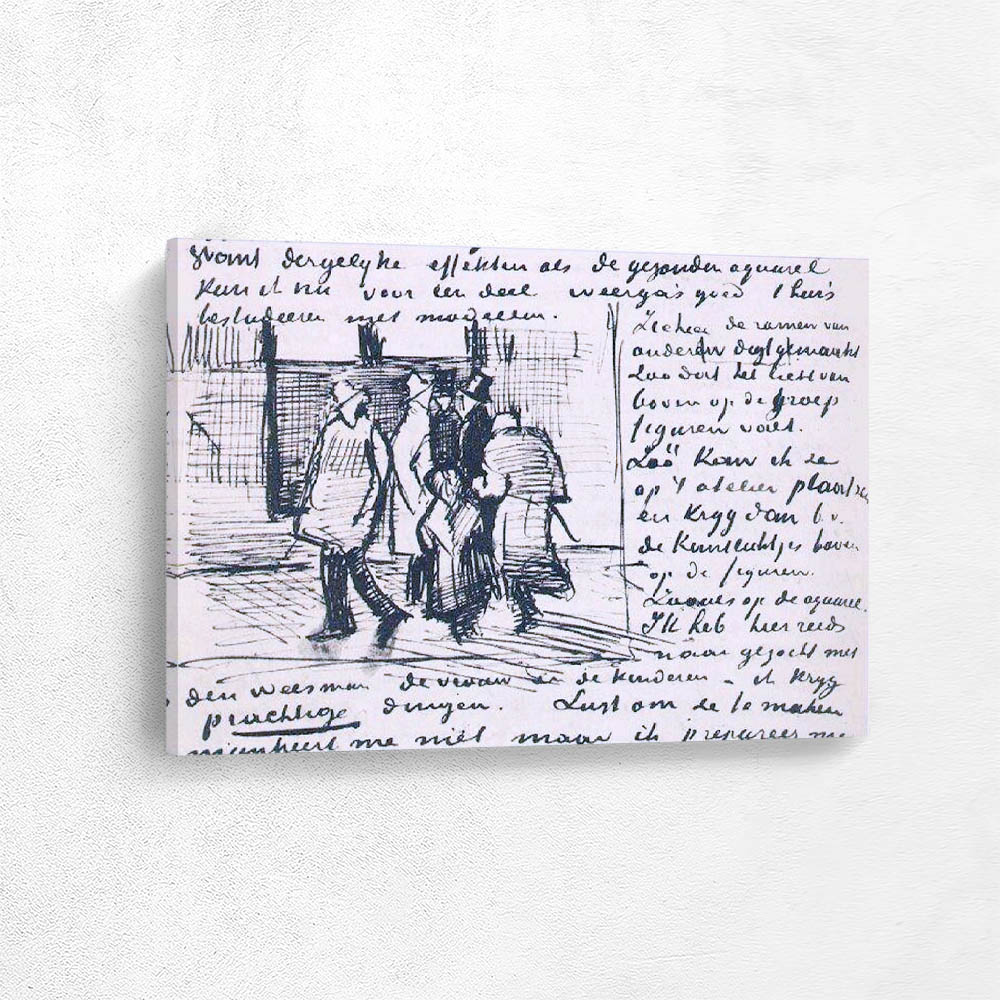 dergelyke effekten als de gezonden aquarel
Kan ik nu voor een deel weergas goed
bestudeeren met modellen.
de ramen van
anderen digtgemaakt
Zoodat het licht van
boven op de groep
figuren valt.
Zoo kan ik ze
op 't atelier plaatsen
en Kryg dan b.v.
de Kantlichtjes boven
op de figuren.
Zooals op de aquarel.
Ik heb heer reeds
naar gezocht met
den weesman de vrouw en de Kinderen – ik Kryg
prachtige dingen. Lust om ze te maken
mankeert me niet maar ik prepareer me